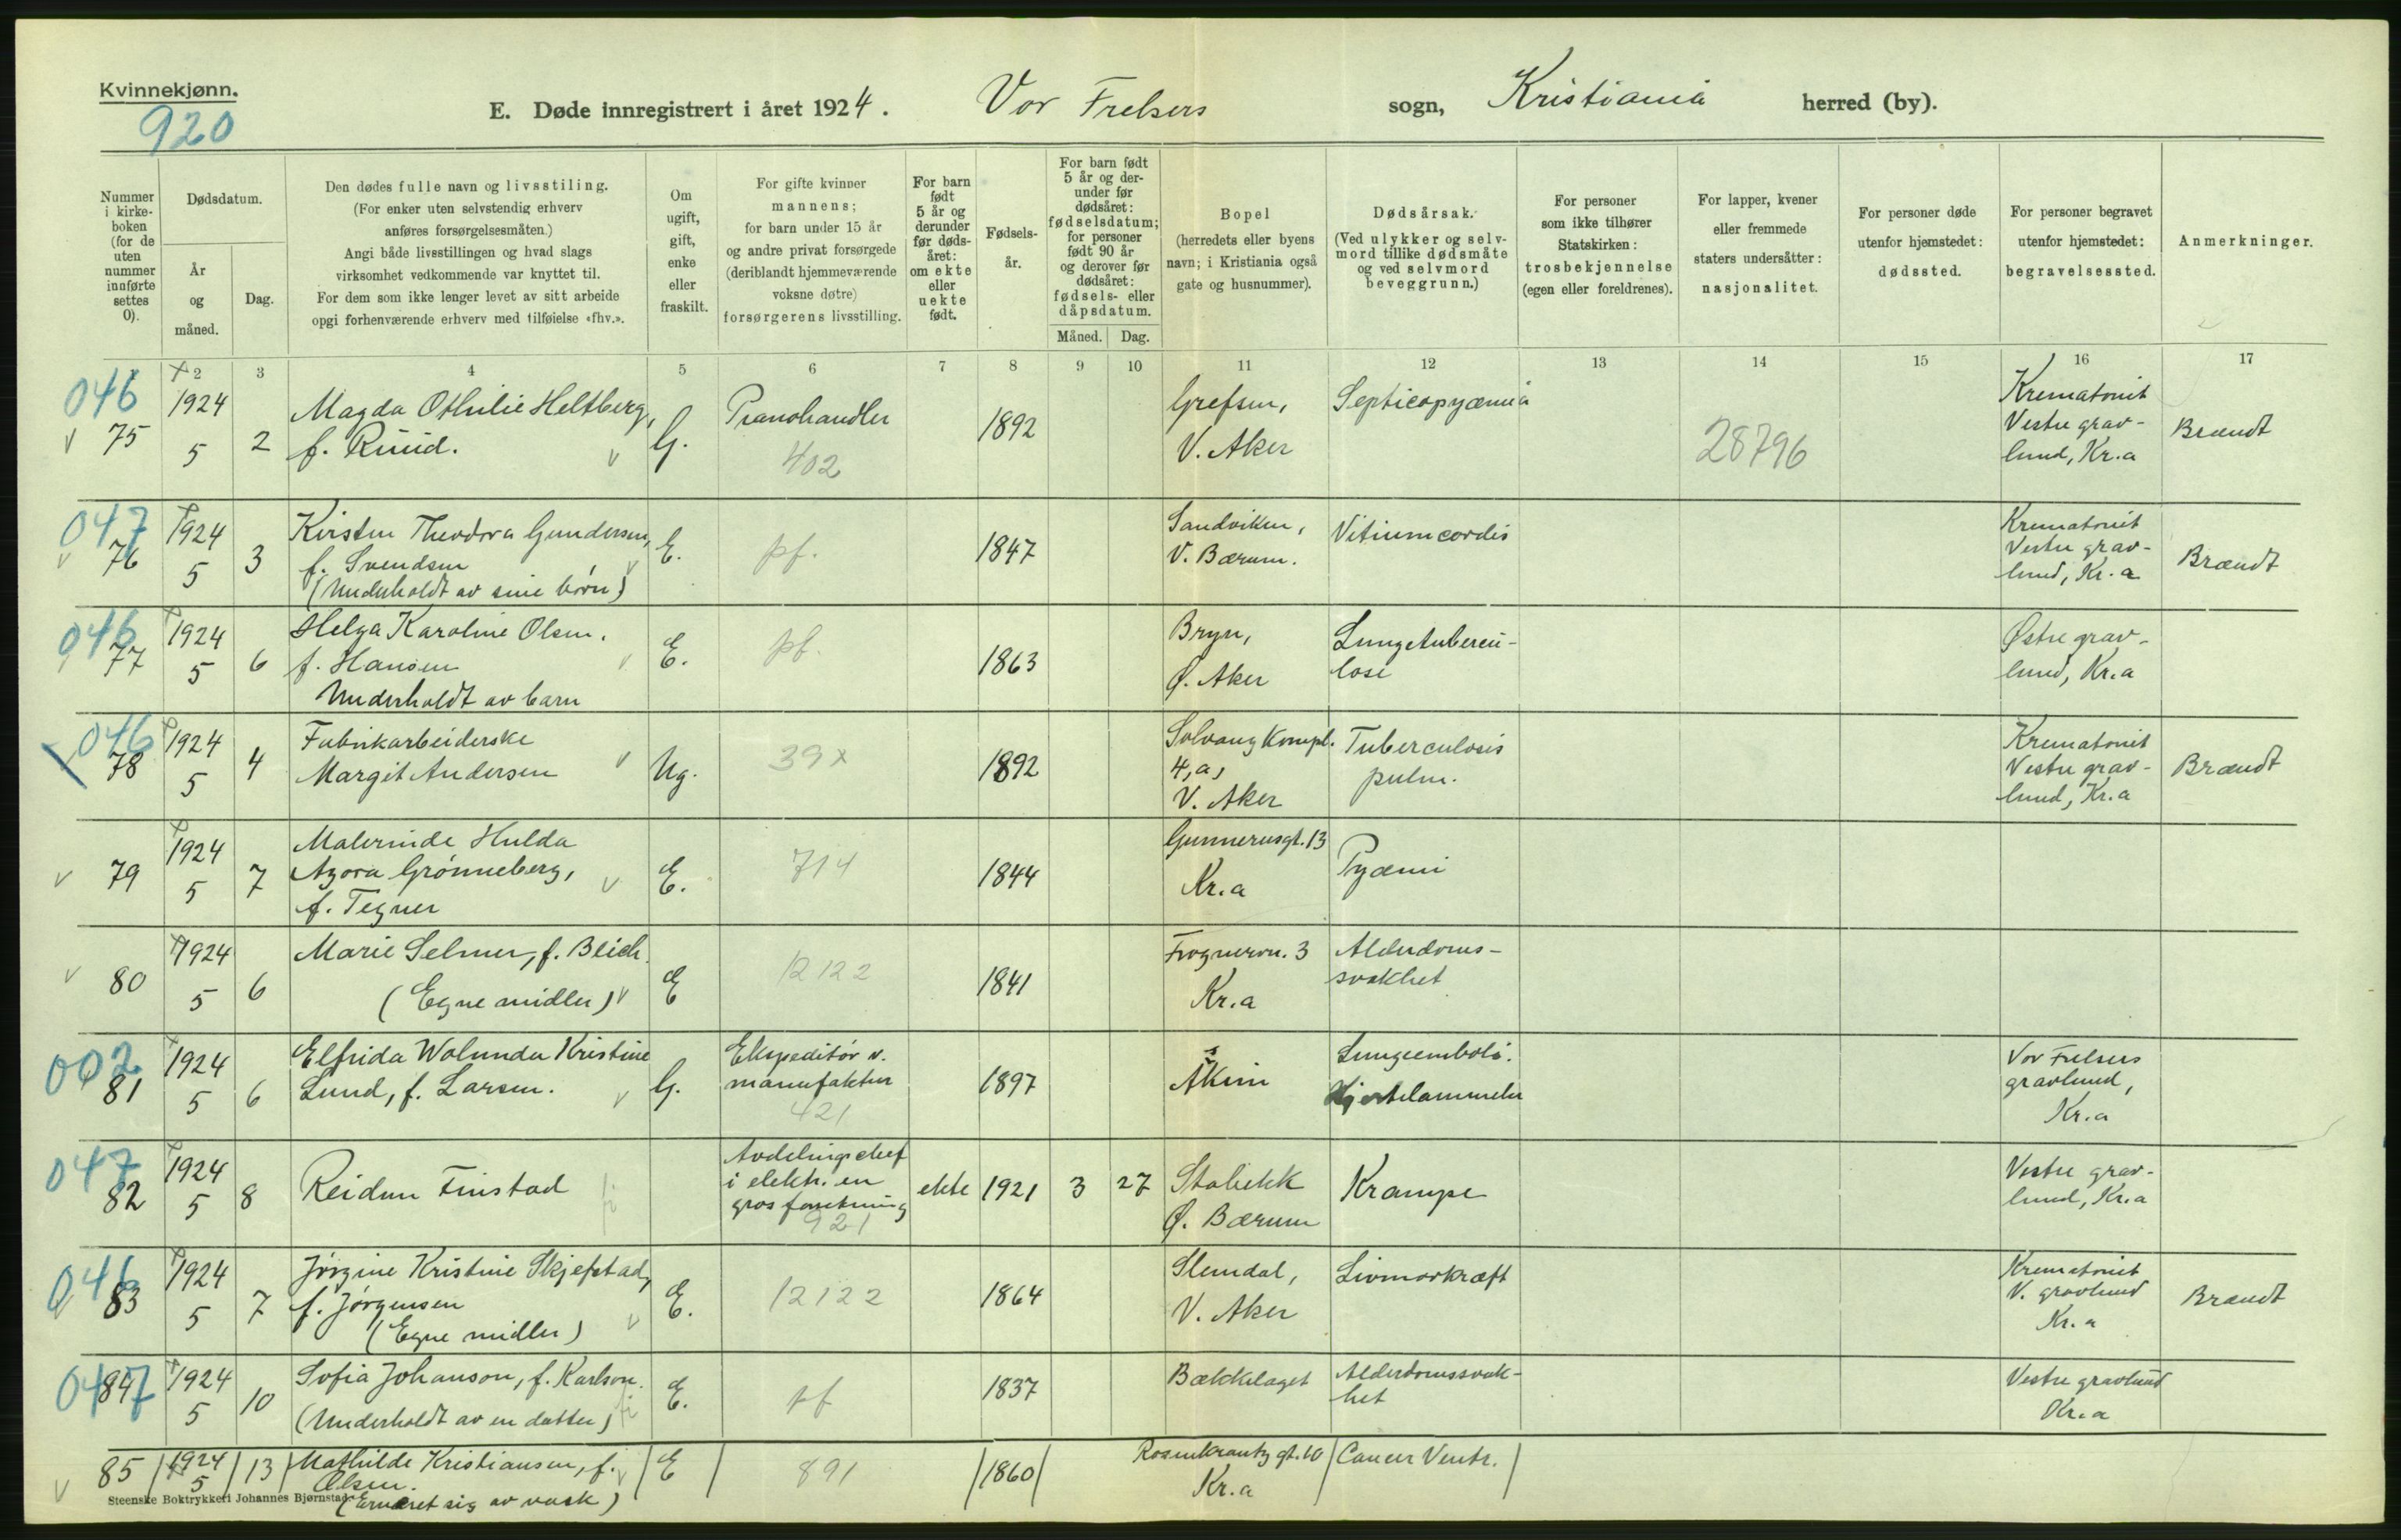 Kvinnekjønn.
920
E. Døde innregistrert i året 1924. Vor Frelsers sogn, Kristiania herred (by).
Nummer i kirkeboken (for de uten nummer innførte settes 0).
Dødsdatum.
År og måned.
Dag.
Den dødes fulle navn og livsstiling.
(For enker uten selvstendig erhverv
anføres forsørgelsesmåten.)
Angi både livsstillingen og hvad slags
virksomhet vedkommende var knyttet til.
For dem som ikke lenger levet av sitt arbeide
opgi forhenværende erhverv med tilføielse «fhv.».
Om ugift, gift, enke eller fraskilt.
For gifte kvinner
mannens;
for barn under 15 år
og andre privat forsørgede
(deriblandt hjemmeværende
voksne døtre)
forsørgerens livsstilling.
For barn født 5 år og derunder før dødsåret: om ekte eller uekte født.
Fødsels-
år.
For barn født
5 år og der-
under før
dødsåret:
fødselsdatum;
for personer
født 90 år
og derover før
dødsåret:
fødsels- eller
dåpsdatum.
Måned. Dag.
Bopel
(herredets eller byens
navn; i Kristiania også
gate og husnummer).
Dødsårsak.
(Ved ulykker og selv-
mord tillike dødsmåte
og ved selvmord
beveggrunn.)
For personer
som ikke tilhører
Statskirken:
trosbekjennelse
(egen eller foreldrenes).
For lapper, kvener
eller fremmede
staters undersåtter:
nasjonalitet.
For personer døde
utenfor hjemstedet:
dødssted.
For personer begravet
utenfor hjemstedet:
begravelsessted.
Anmerkninger.
2 3 4 5 6 7 8 9 10 11 12 13 14 15 16 17
046 1924 Magda Othilie Heltberg, Pianohandler Grefsen, Septicopyæmia Krematoriet
75 5 2 f. Ruud. G. 402 1892 V. Aker 28796 Vestre grav-
lund, Kr.a Brændt
047 1924 Kirsten Theodora Gundersen, Sandviken, Vitium cordis Krematoriet
76 5 3 f. Svendsen E. pf. 1847 V. Bærum. Vestre grav-
(Underholdt av sine børn) lund, Kr.a Brændt
046 1924 Helga Karoline Olsen, Bryn, Lungetubercu- Østre grav-
77 5 6 f. Hansen E. pf. 1863 Ø. Aker lose lund, Kr.a
Underholdt av barn
046 1924 Fabrikarbeiderske Solvang kompl. Tuberculosis Krematoriet
78 5 4 Margit Andersen Ug. 39x 1892 4, a, pulm. Vestre grav- Brændt
V. Aker lund, Kr.a
1924 Malerinde Hulda Gunnerusgt. 13
79 5 7 Agora Grønneberg, E. 714 1844 Kr.a Pyæmi
f. Tegner
1924 Marie Selmer, f. Blich. Frognervn. 3 Alderdoms-
80 5 6 (Egne midler) E 12122 1841 Kr.a svakhet
002 1924 Elfrida Wolunda Kristine Ekspeditør v. Lungeemboli. Vor Frelsers
81 5 6 Lund, f. Larsen. G. manufaktur 1897 Askim Hjertelammelse gravlund,
421 Kr.a
047 1924 Avdelingschef
82 5 8 Reidun Finstad i elektr. en ekte 1921 3 27 Stabekk Krampe Vestre grav-
gros forretning Ø. Bærum lund, Kr.a
921
046 1924 Jørgine Kristine Skjefstad, Slemdal, Livmorkræft Krematoriet
83 5 7 f. Jørgensen E. 12122 1864 V. Aker V. gravlund Brændt
(Egne midler) Kr.a
047 1924 Sofia Johanson, f. Karlson. Bækkelaget Alderdomssvak- Vestre gravlund
84 5 10 (Underholdt av en datter) E. pf 1837 het Kr.a
85 1924 13 Mathilde Kristiansen, f. E 891 1860 Rosenkrantz gt. 10 Cancer Ventr.
5 Olsen. Kr.a
(Ernæret sig av vask)
Steenske Boktrykkeri Johannes Bjørnstad.